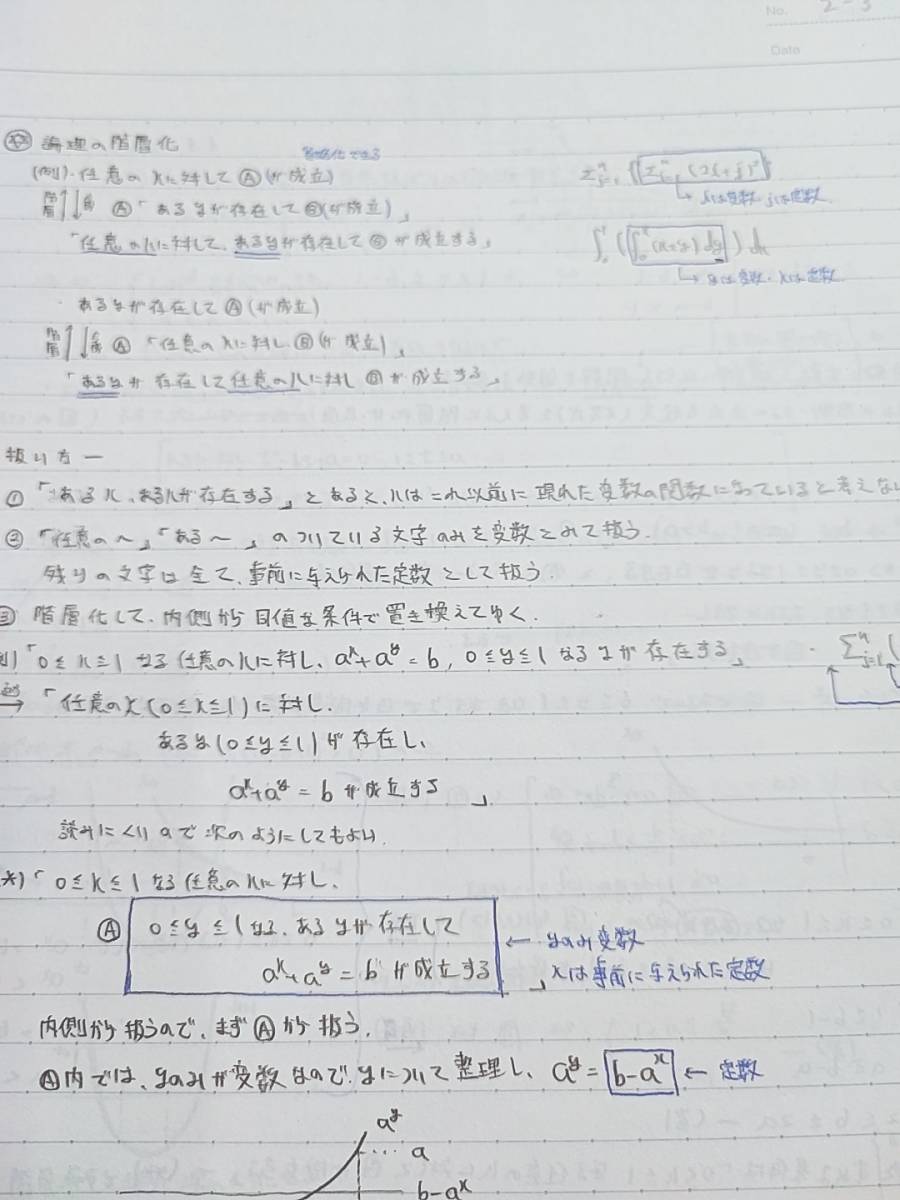 No. 2-3
Date
論理の階層化
(例)・任意のxに対してⒶ(が成立)
Ⓐ「あるyが存在してⒷ(が成立)」
「任意のxに対して、あるyが存在してⒷが成立する」
・あるyが存在してⒶ(が成立)
Ⓐ「任意のxに対しⒷ(が成立)」
「あるyが存在して任意のxに対しⒷが成立する」
xは変数 jは定数
∫₀¹(∫₀¹(x+y)dy)dx
yは変数・xは定数
扱い方ー
①「あるx、あるxが存在する」とあると、xはこれ以前に現れた変数の関数になっていると考えな
②「任意の〜」「ある〜」のついている文字のみを変数とみて扱う.
残りの文字は全て、事前に与えられた定数として扱う.
③ 階層化して、内側から同値な条件で置き換えてゆく.
例)「0≦x≦1なる任意のxに対し、aˣ+aʸ=b, 0≦y≦1なるyが存在する」
→「任意のx(0≦x≦1)に対し.
あるy(0≦y≦1)が存在し、
aˣ+aʸ=bが成立する」
読みにくいので次のようにしてもよい.
*)「0≦x≦1なる任意のxに対し.
Ⓐ 0≦y≦1なる、あるyが存在して
aˣ+aʸ=bが成立する」
← yのみ変数
xは事前に与えられた定数
内側から扱うので、まずⒶから扱う.
Ⓐ内では、yのみが変数なのでyについて整理し、aʸ=b-aˣ ← 定数
aʸ
a
b-aˣ